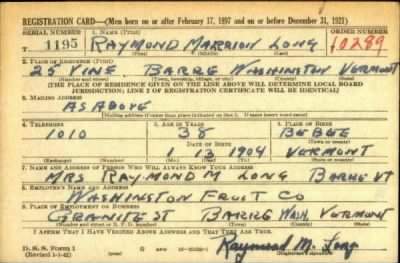 REGISTRATION CARD—(Men born on or after February 17, 1897 and on or before December 31, 1921)
SERIAL NUMBER 1. NAME (Print) ORDER NUMBER
T 1195 RAYMOND MARRION LONG 10289
(First) (Middle) (Last)
2. PLACE OF RESIDENCE (Print)
25 VINE BARRE WASHINGTON VERMONT
(Number and street) (Town, township, village, or city) (County) (State)
[THE PLACE OF RESIDENCE GIVEN ON THE LINE ABOVE WILL DETERMINE LOCAL BOARD
JURISDICTION; LINE 2 OF REGISTRATION CERTIFICATE WILL BE IDENTICAL]
3. MAILING ADDRESS
AS ABOVE
[Mailing address if other than place indicated on line 2. If same insert word same]
4. TELEPHONE 5. AGE IN YEARS 6. PLACE OF BIRTH
1010 38 BEBEE
DATE OF BIRTH (Town or county)
1 13 1904 VERMONT
(Exchange) (Number) (Mo.) (Day) (Yr.) (State or country)
7. NAME AND ADDRESS OF PERSON WHO WILL ALWAYS KNOW YOUR ADDRESS
MRS RAYMOND M LONG BARRE VT
8. EMPLOYER'S NAME AND ADDRESS
WASHINGTON FRUIT CO
9. PLACE OF EMPLOYMENT OR BUSINESS
GRANITE ST BARRE WASH. VERMONT
(Number and street or R. F. D. number) (Town) (County) (State)
I AFFIRM THAT I HAVE VERIFIED ABOVE ANSWERS AND THAT THEY ARE TRUE.
D. S. S. Form 1
(Revised 1-1-42) Raymond M. Long
(Registrant's signature)